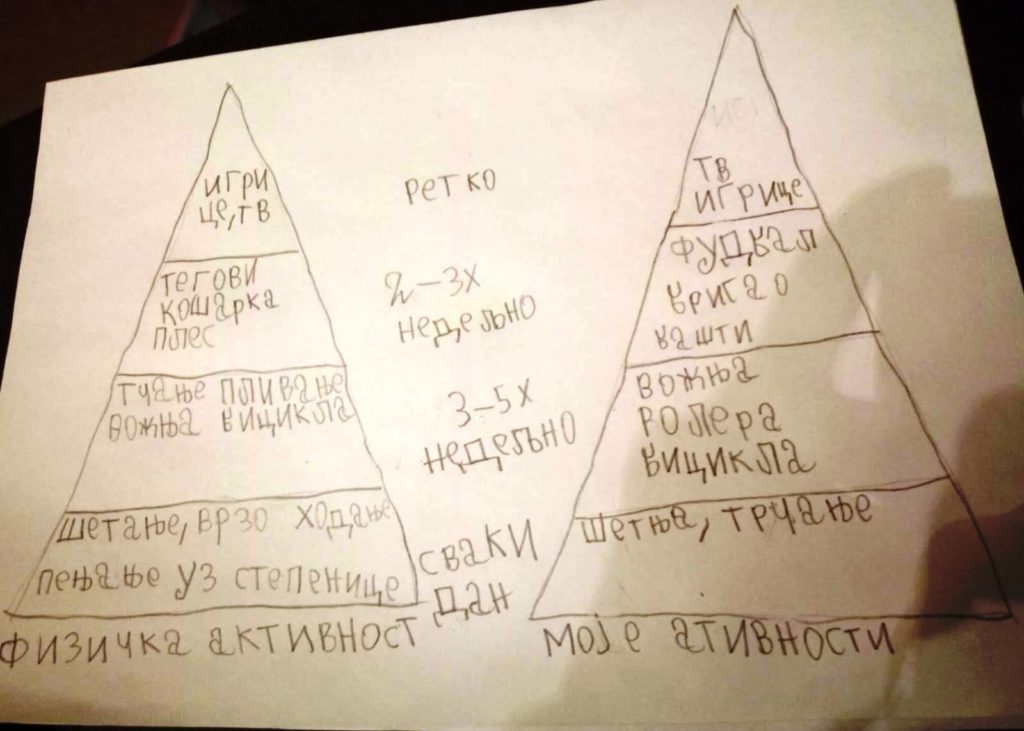 игри
це, тв
тегови
кошарка
плес
тчање пливање
вожња бицикла
шетање, брзо ходање
пењање уз степенице
физичка активност
ретко
2-3x
недељно
3-5x
недељно
сваки
дан
тв
игрице
фудбал
брига о
башти
вожња
ролера
бицикла
шетња, трчање
моје ативности